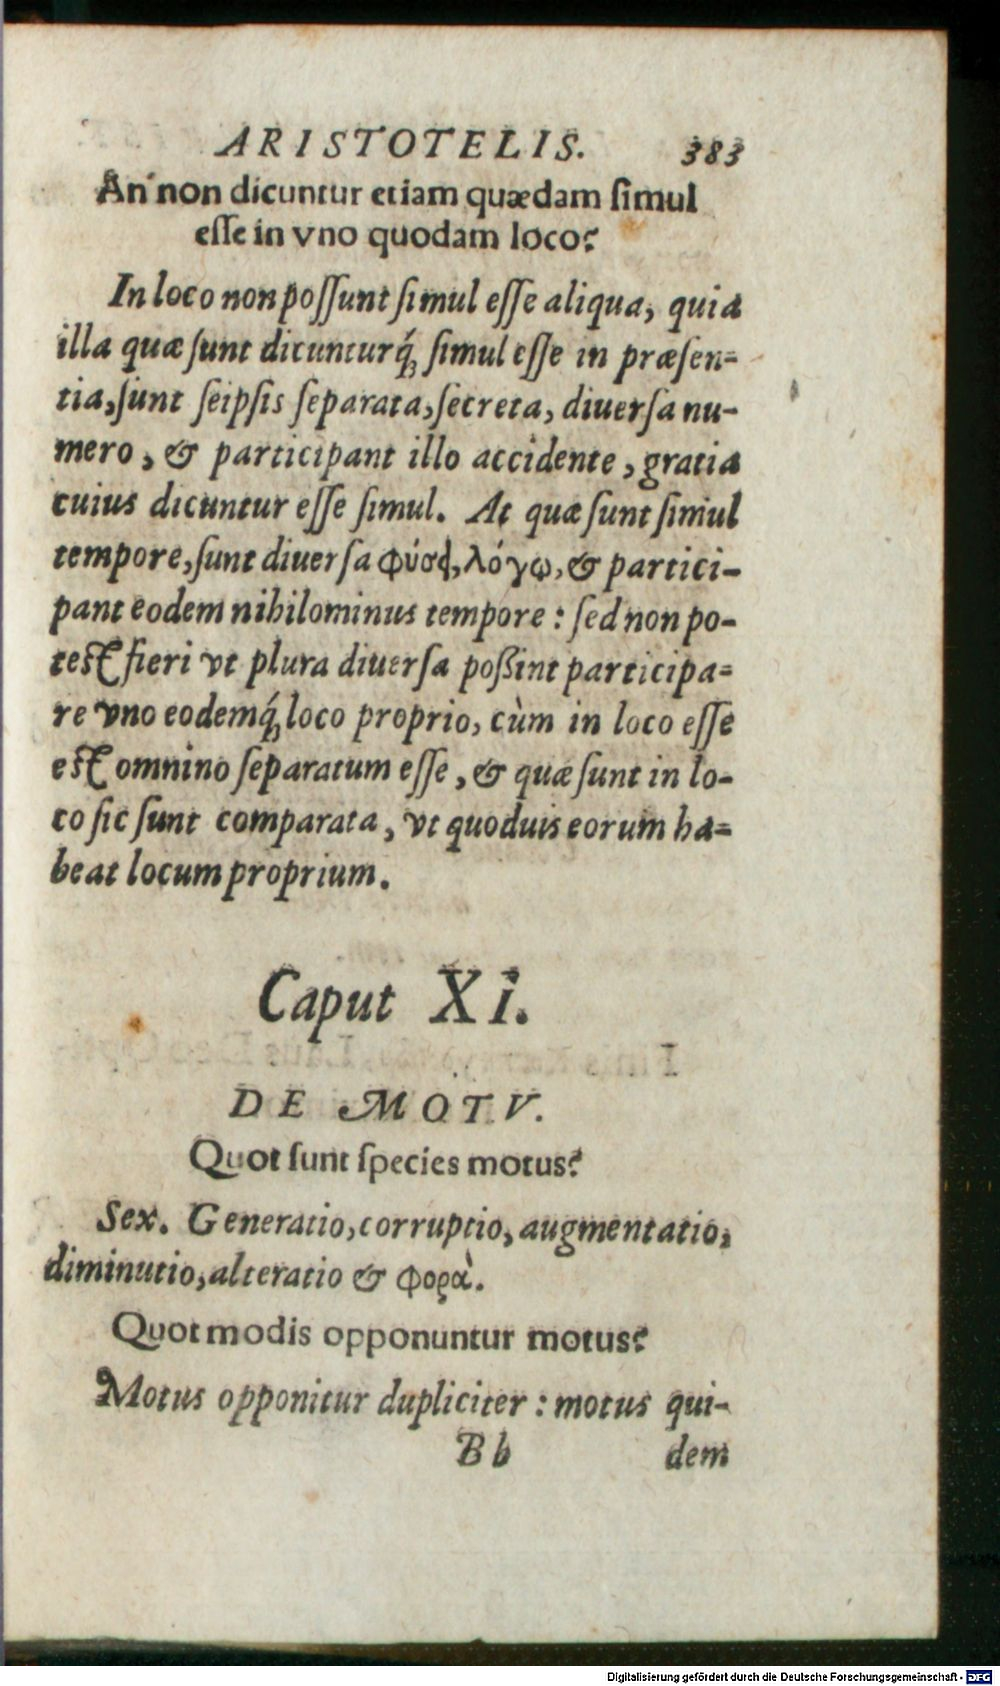 ARISTOTELIS. 383
An non dicuntur etiam quædam ſimul
eſſe in vno quodam loco?
In loco non poſſunt ſimul eſſe aliqua, quia
illa quæ ſunt dicunturq́; ſimul eſſe in præſen-
tia, ſunt ſeipſis ſeparata, ſecreta, diuerſa nu-
mero, & participant illo accidente, gratia
cuius dicuntur eſſe ſimul. At quæ ſunt ſimul
tempore, ſunt diuerſa φύσει, λόγω, & partici-
pant eodem nihilominus tempore: ſed non po-
test fieri vt plura diuerſa poßint participa-
re vno eodemq́; loco proprio, cùm in loco eſſe
est omnino ſeparatum eſſe, & quæ ſunt in lo-
co ſic ſunt comparata, vt quoduis eorum ha-
beat locum proprium.
Caput XI.
DE MOTV.
Quot ſunt ſpecies motus?
Sex. Generatio, corruptio, augmentatio,
diminutio, alteratio & φορὰ.
Quot modis opponuntur motus?
Motus opponitur dupliciter: motus qui-
Bb dem
Digitalisierung gefördert durch die Deutsche Forschungsgemeinschaft - DFG